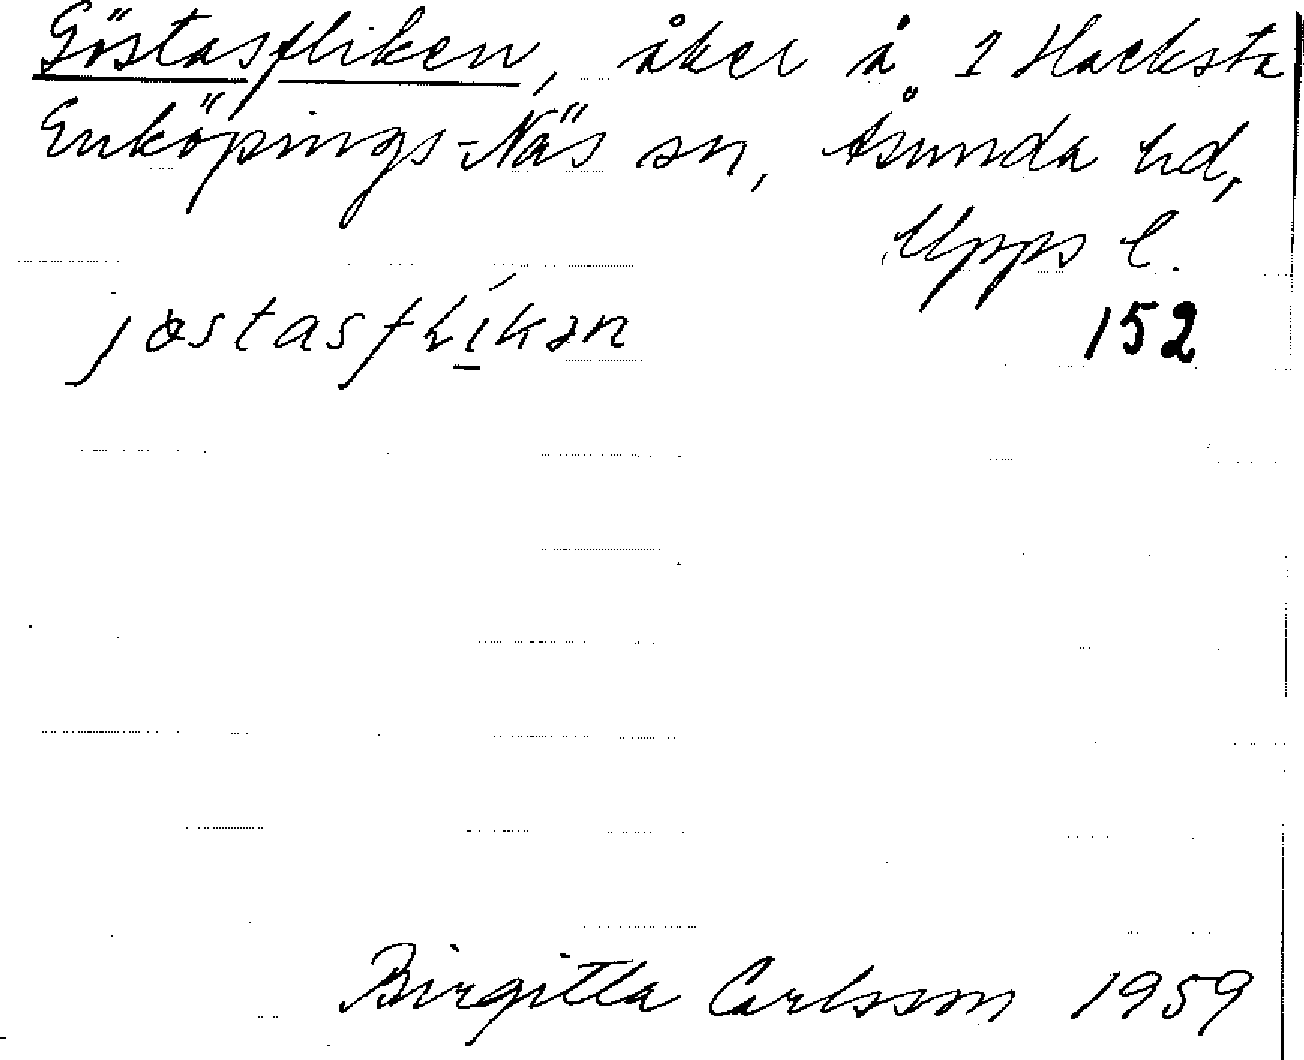 Göstasfliken, åker å 1 Hacksta
Enköpings-Näs sn, Åsunda hd,
Upps l.
jɵstasflikən
152
Birgitta Carlsson 1959